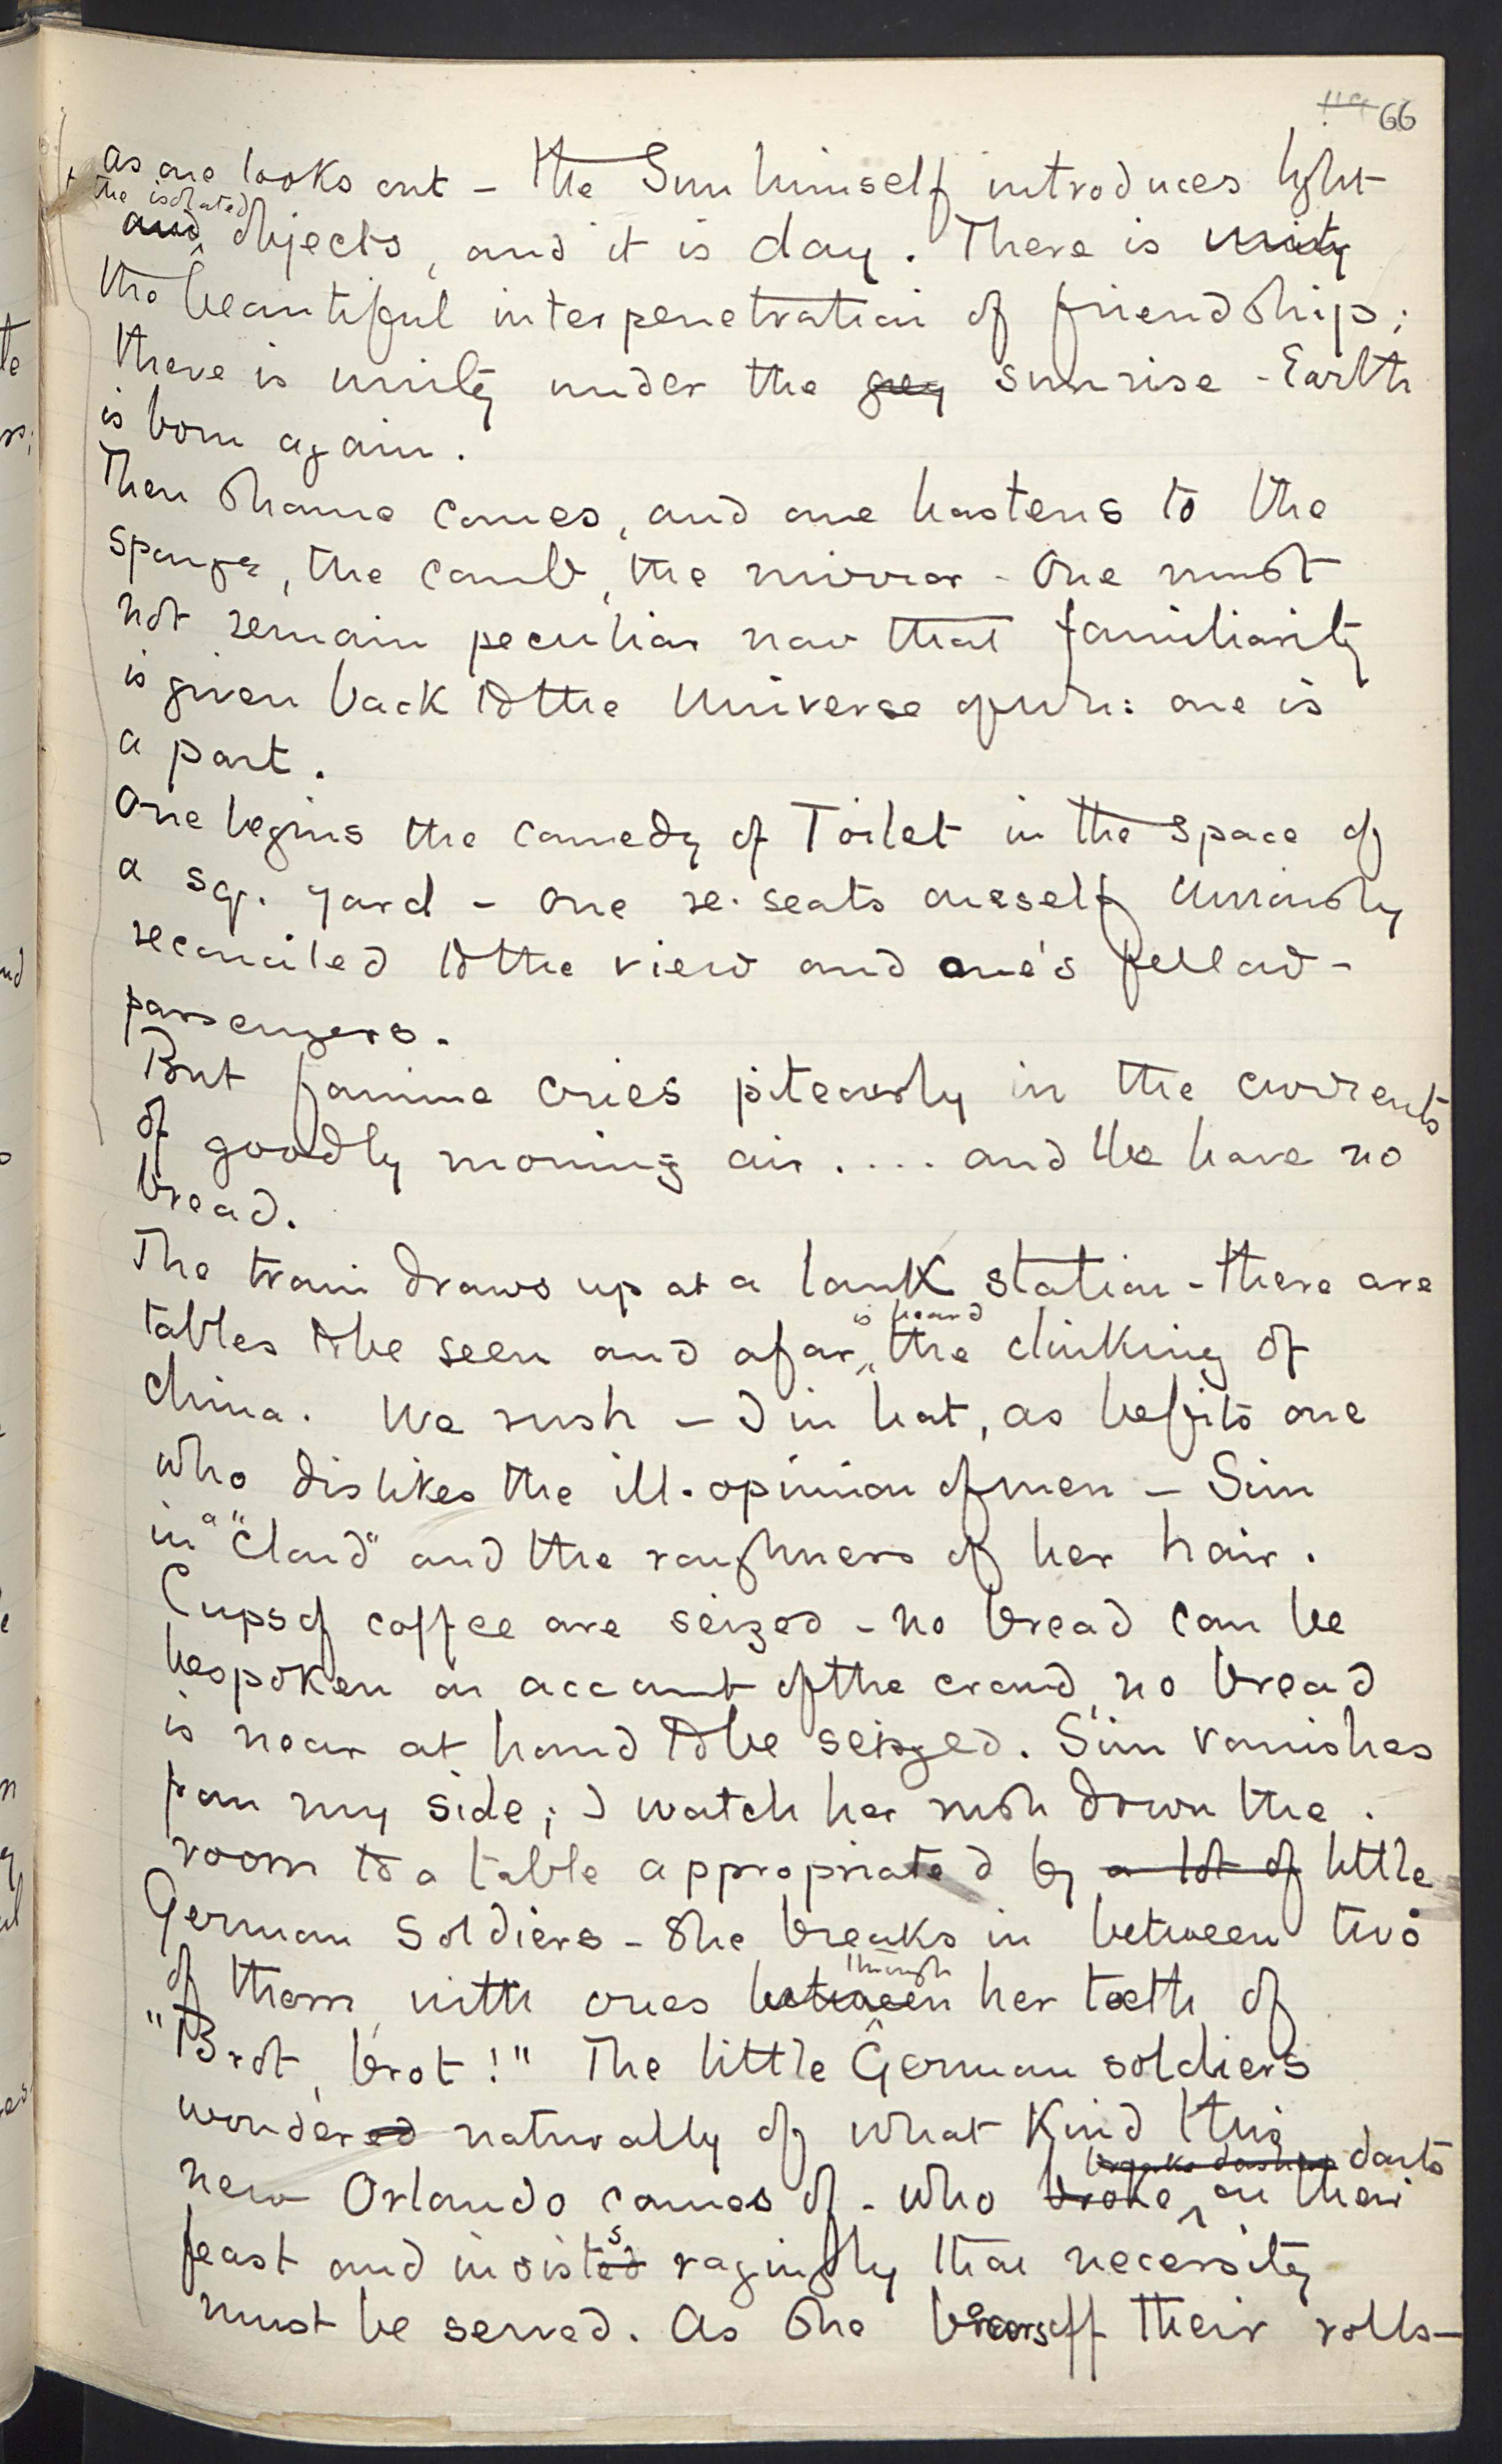 119 66
as one looks out – the Sun himself introduces light
the isolated
and objects, and it is day. There is unity
the beautiful interpenetration of friendship;
there is unity under the grey sunrise - Earth
is born again.
Then shame comes, and one hastens to the
sponge, the comb, the mirror - One must
not remain peculiar now that familiarity
is given back to the Universe of wh: one is
a part.
One begins the comedy of Toilet in the space of
a sq. yard - one re-seats oneself curiously
reconciled to the view and one's fellow-
passengers.
But famine cries piteously in the currents
of goodly morning air .... and we have no
bread.
The train draws up at a lank station - there are
is heard
tables to be seen and afar the clinking of
china. We rush – I in hat, as befits one
who dislikes the ill-opinion of men – Sim
in a "cloud" and the roughness of her hair.
Cups of coffee are seized - no bread can be
bespoken on account of the crowd, no bread
is near at hand to be seized. Sim vanishes
from my side; I watch her rush down the
room to a table appropriated by a lot of little
German Soldiers - She breaks in between two
through
of them, with cries between her teeth of
"Brot, brot!" The little German soldiers
wondered naturally of what Kind this
breaks dashes darts
new Orlando comes of - who broke on their
feast and insisted s ragingly that necessity
must be served. As she bears off their rolls—